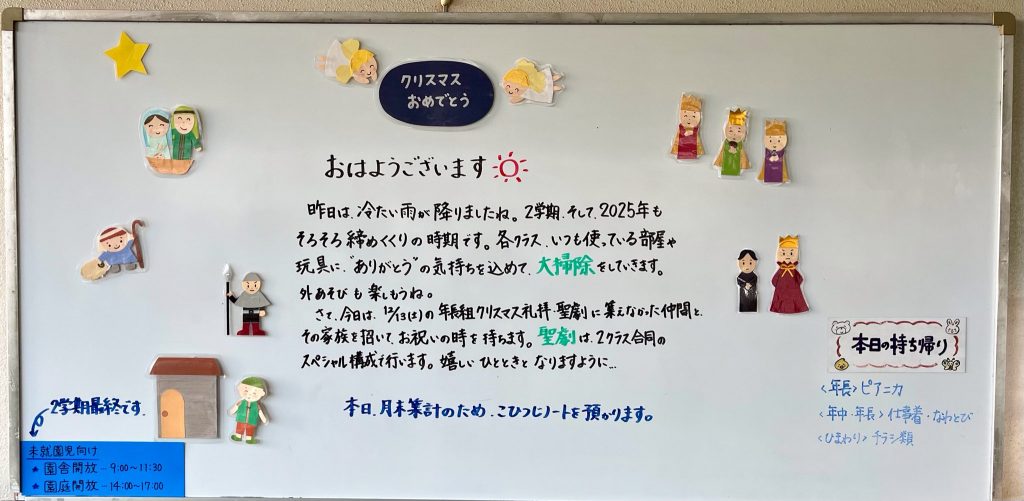 クリスマス
おめでとう
おはようございます
昨日は、冷たい雨が降りましたね。2学期、そして、2025年も
そろそろ締めくくりの時期です。各クラス、いつも使っている部屋や
玩具に、"ありがとう"の気持ちを込めて、大掃除をしていきます。
外あそびも楽しもうね。
さて、今日は、12/13(土)の年長組クリスマス礼拝・聖劇に集えなかった仲間と、
その家族を招いて、お祝いの時を持ちます。聖劇は、2クラス合同の
スペシャル構成で行います。嬉しいひとときとなりますように…
本日、月末集計のため、こひつじノートを預かります。
2学期最終です。
未就園児向け
★ 園舎開放…9:00〜11:30
★ 園庭開放…14:00〜17:00
本日の持ち帰り
<年長> ピアニカ
<年中・年長> 仕事着・なわとび
<ひまわり> チラシ類